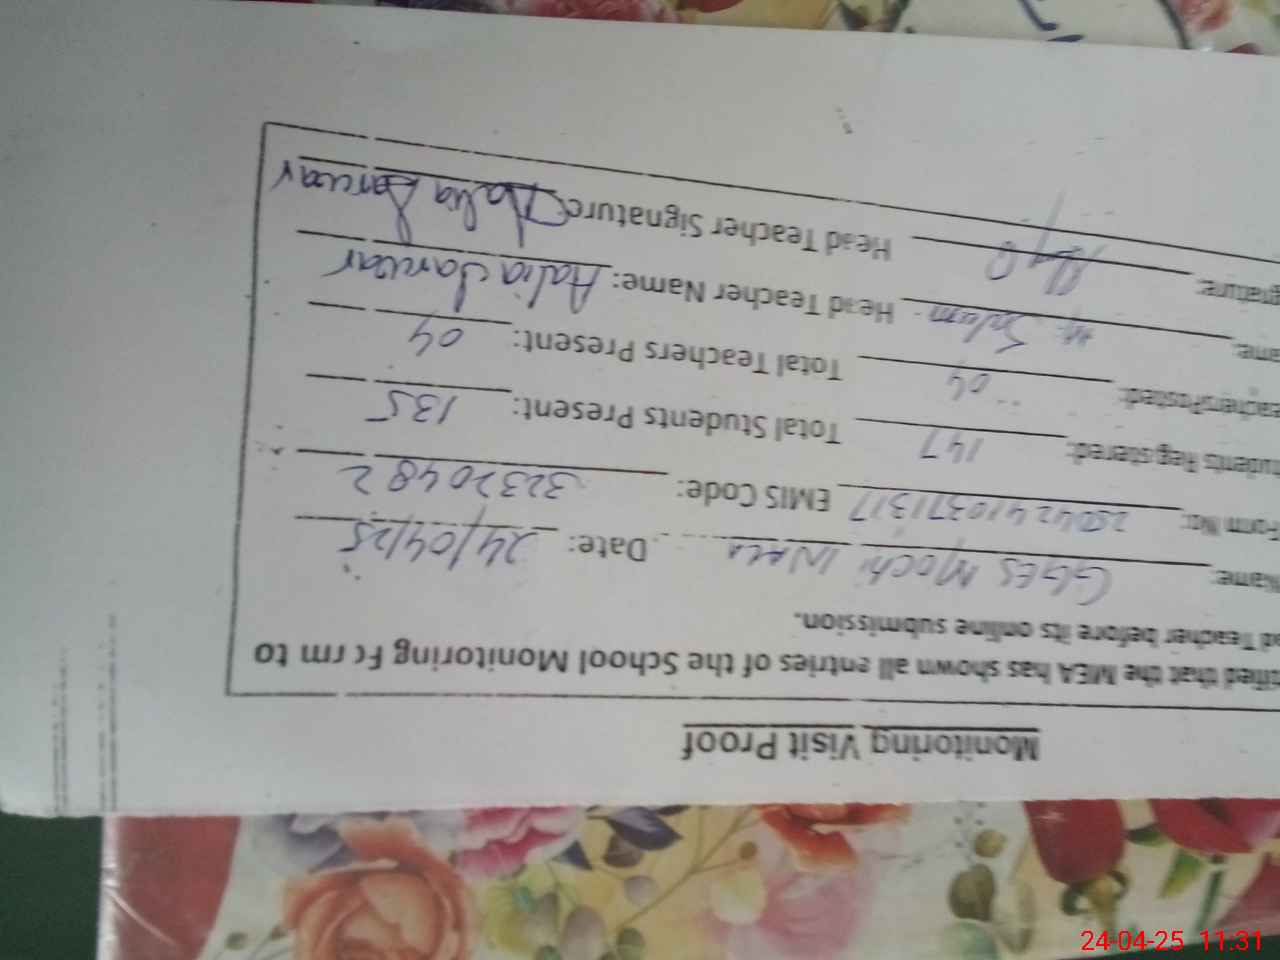 Monitoring Visit Proof
tified that the MEA has shown all entries of the School Monitoring Form to
ad Teacher before its online submission.
Name: GGES Mochi Date: 24/04/25
Form No: 25042410371317 EMIS Code: 32320482
udents Registered: 147 Total Students Present: 135
eachers Posted: 04 Total Teachers Present: 04
ame: M. Salam Head Teacher Name: Aalia Sarwar
gnature: Head Teacher Signature: Aalia Sarwar
24-04-25 11:31